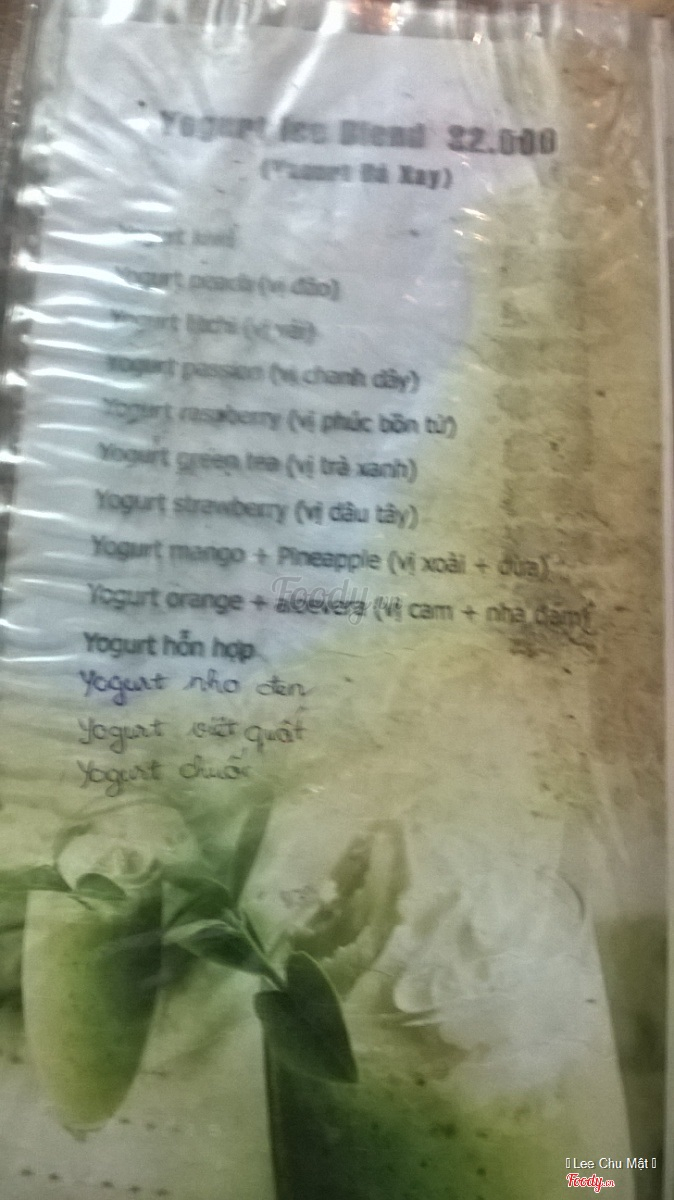 Yogurt Ice Blend 32.000
(Yogurt Đá Xay)
Yogurt kiwi
Yogurt peach (vị đào)
Yogurt litchi (vị vải)
Yogurt passion (vị chanh dây)
Yogurt raspberry (vị phúc bồn tử)
Yogurt green tea (vị trà xanh)
Yogurt strawberry (vị dâu tây)
Yogurt mango + Pineapple (vị xoài + dứa)
Yogurt orange + aloevera (vị cam + nha đam)
Yogurt hỗn hợp
Yogurt nho đen
Yogurt việt quất
Yogurt chuối
Foody.vn
Lee Chu Mật
Foody.vn